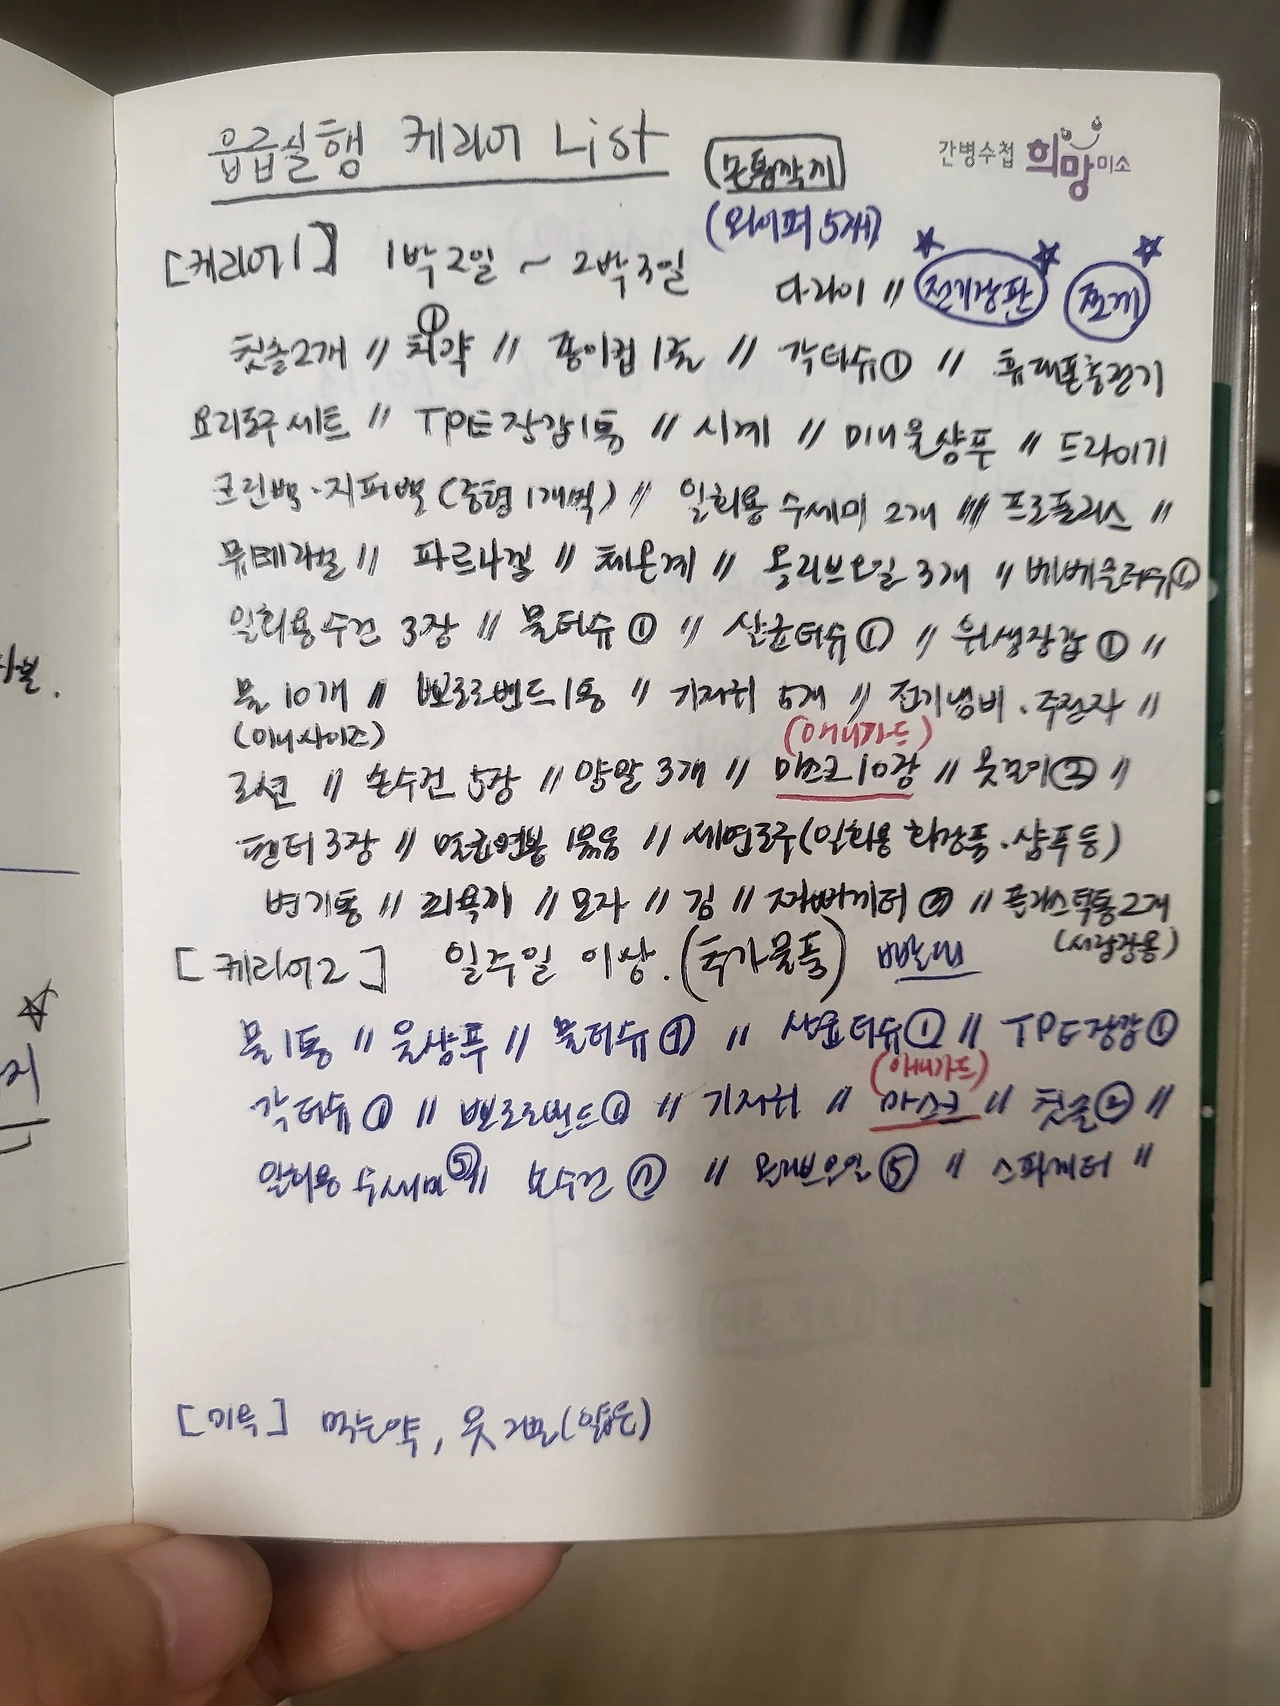 응급실행 케리어 List
(손톱깎기)
간병수첩 희망미소
(와이퍼 5개)
[케리어1] 1박2일 ~ 2박3일
다라이 // 전기장판 조끼
칫솔2개 // 치약① // 종이컵 1줄 // 각티슈① // 휴대폰충전기
요리도구 세트 // TPE장갑1통 // 시계 // 미니울샴푸 // 드라이기
크린백·지퍼백(중형1개씩) // 일회용 수세미 2개 // 프로폴리스 //
뮤테라실 // 파르나겔 // 체온계 // 올리브오일 3개 // 베베물티슈①
일회용수건 3장 // 물티슈① // 살균티슈① // 위생장갑① //
물 10개 // 뽀로로밴드1통 // 기저귀 5개 // 전기냄비·주전자 //
(미니사이즈)
(애니가드)
로션 // 손수건 5장 // 양말 3개 // 마스크10장 // 옷걸이② //
팬티 3장 // 멸균면봉 1묶음 // 세면도구(일회용 화장품·샴푸등)
변기통 // 모자 // 김 // 플라스틱통2개
(서랍장용)
[케리어2] 일주일 이상.(추가물품) 빨대
물1통 // 울샴푸 // 물티슈① // 살균티슈① // TPE장갑①
(애니가드)
각티슈① // 뽀로로밴드① // 기저귀 // 마스크 // 칫솔② //
일회용 수세미⑤ // 손수건 // 올리브오일⑤ // 스파게티 //
[기록] 먹는약, 옷 (얇은)